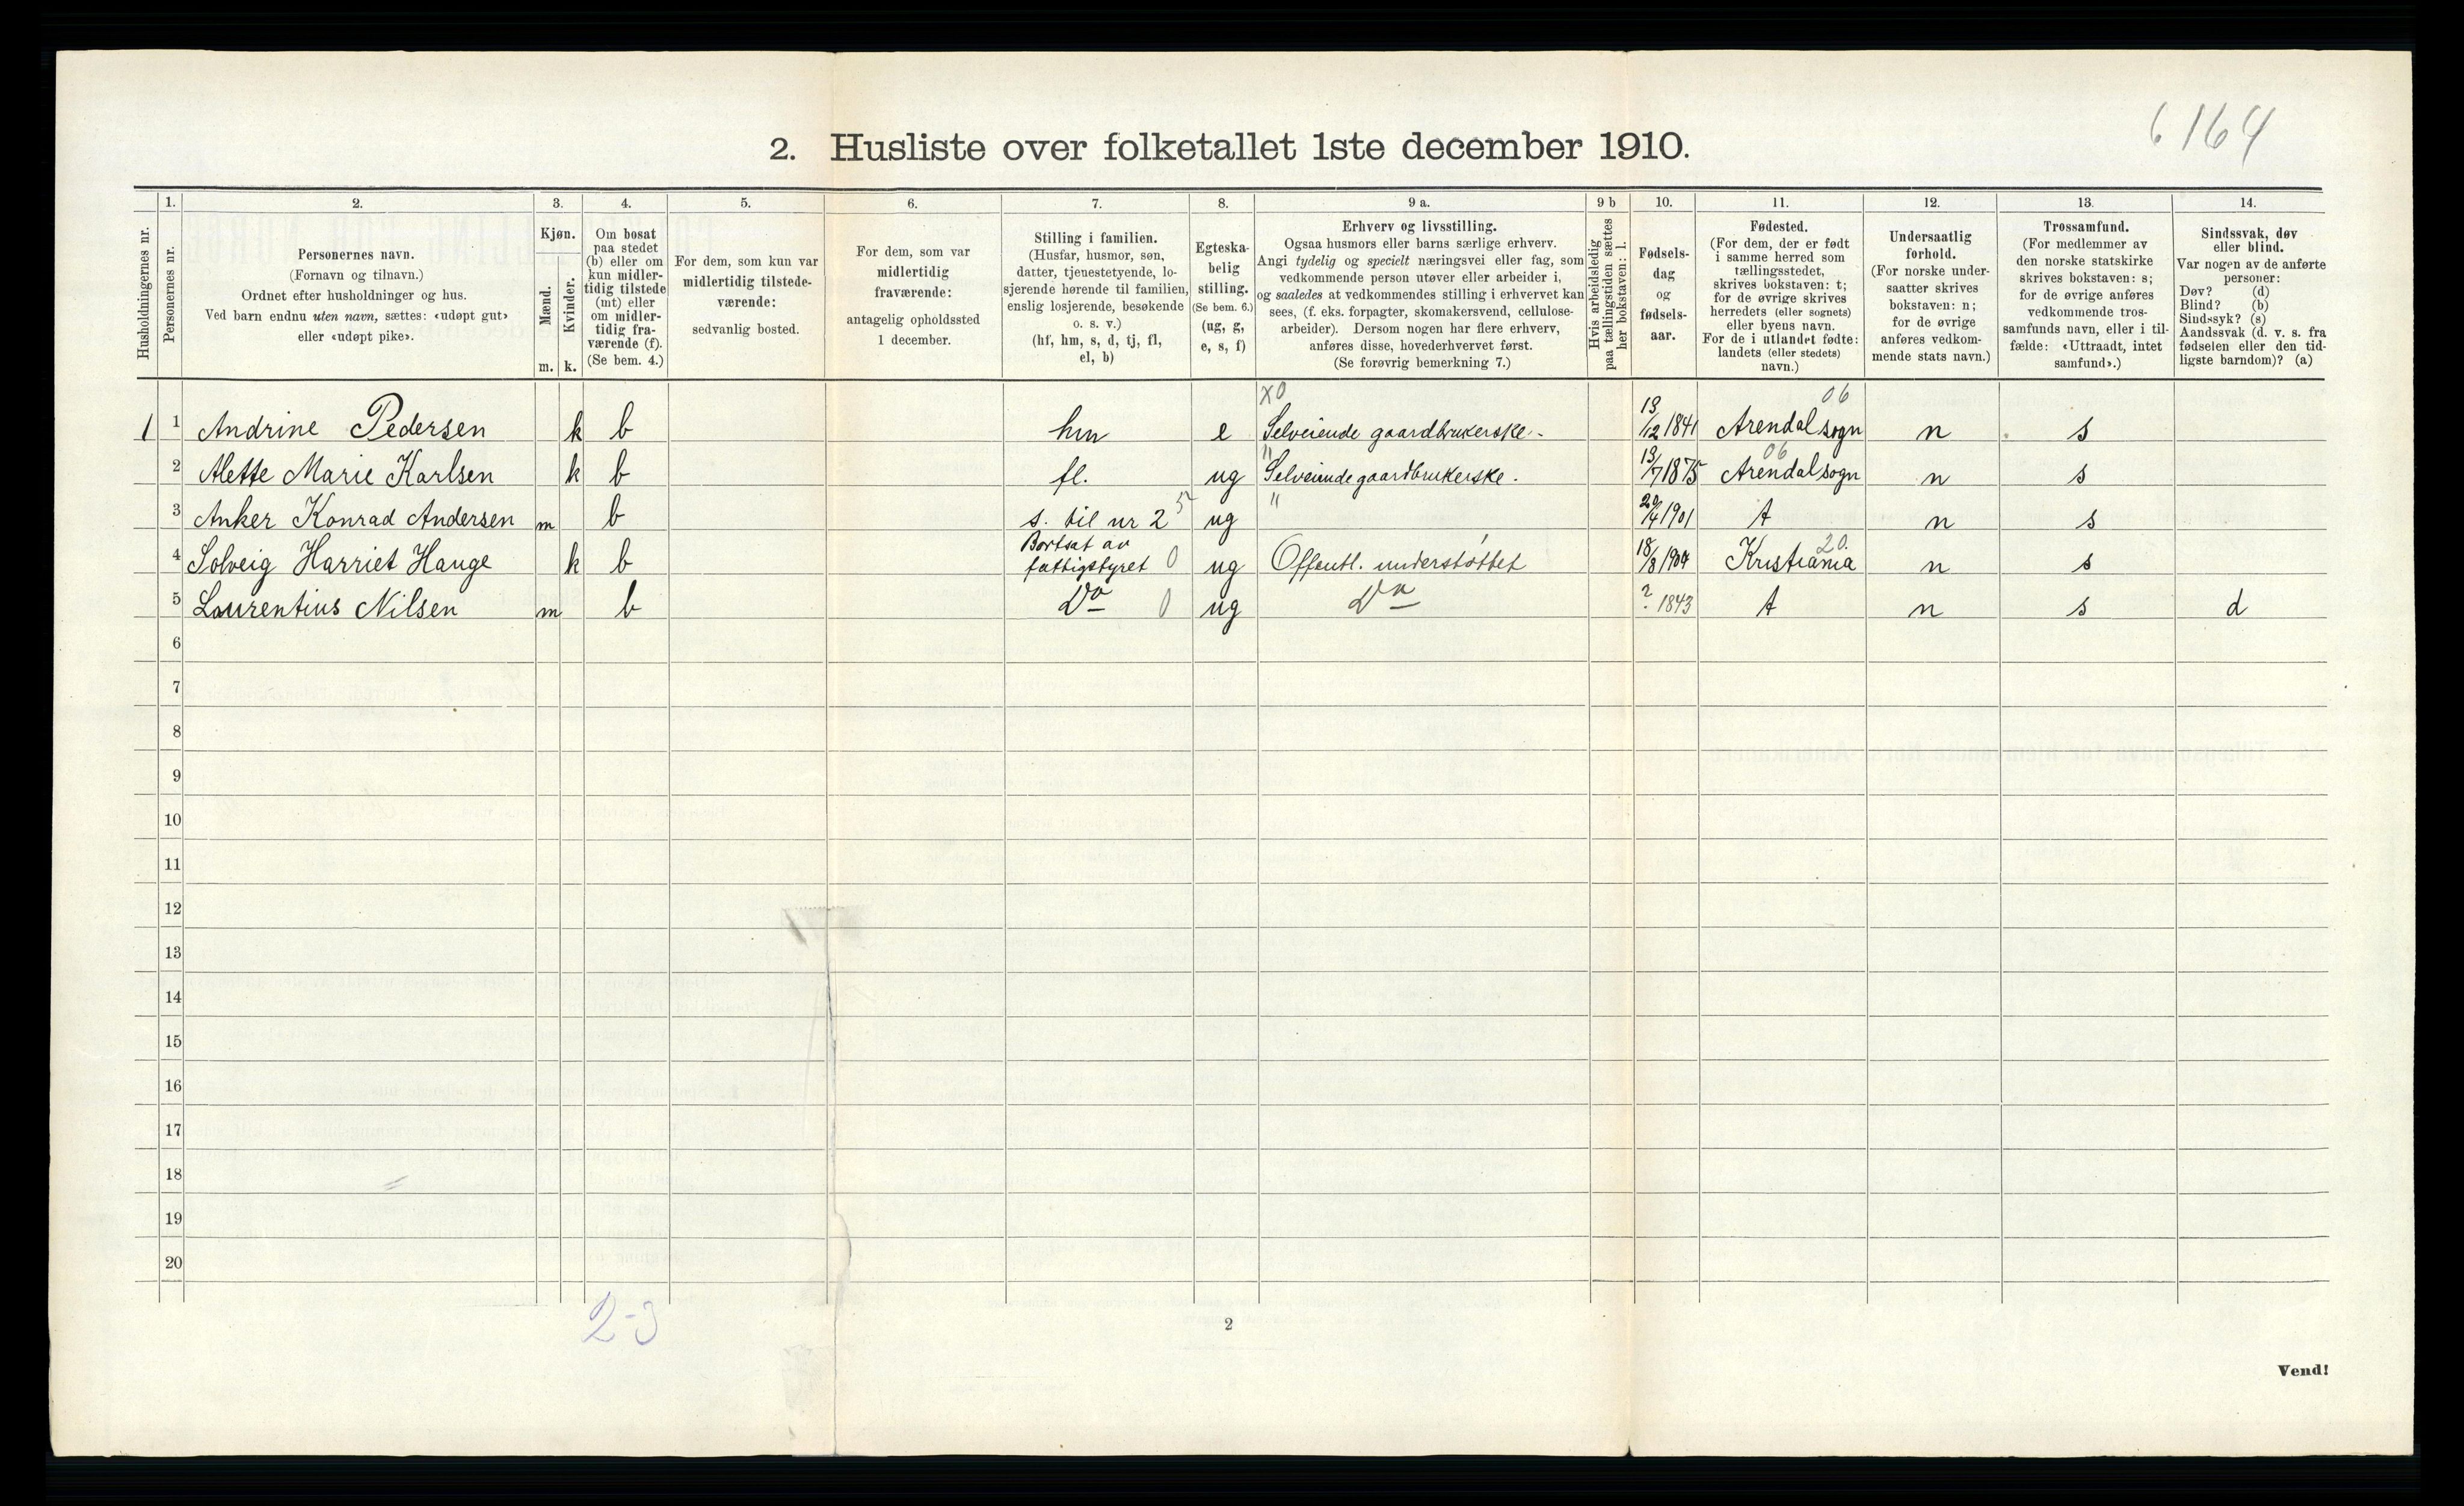 6164
2. Husliste over folketallet 1ste december 1910.
Husholdningernes nr.
1.
Personernes nr.
2.
Personernes navn.
(Fornavn og tilnavn.)
Ordnet efter husholdninger og hus.
Ved barn endnu uten navn, sættes: «udøpt gut»
eller «udøpt pike».
3.
Kjøn.
Mænd.
Kvinder.
m. k.
4.
Om bosat
paa stedet
(b) eller om
kun midler-
tidig tilstede
(mt) eller
om midler-
tidig fra-
værende (f).
(Se bem. 4.)
5.
For dem, som kun var
midlertidig tilstede-
værende:
sedvanlig bosted.
6.
For dem, som var
midlertidig
fraværende:
antagelig opholdssted
1 december.
7.
Stilling i familien.
(Husfar, husmor, søn,
datter, tjenestetyende, lo-
sjerende hørende til familien,
enslig losjerende, besøkende
o. s. v.)
(hf, hm, s, d, tj, fl,
el, b)
8.
Egteska-
belig
stilling.
(Se bem. 6.)
(ug, g,
e, s, f)
9 a.
Erhverv og livsstilling.
Ogsaa husmors eller barns særlige erhverv.
Angi tydelig og specielt næringsvei eller fag, som
vedkommende person utøver eller arbeider i,
og saaledes at vedkommendes stilling i erhvervet kan
sees, (f. eks. forpagter, skomakersvend, cellulose-
arbeider). Dersom nogen har flere erhverv,
anføres disse, hovederhvervet først.
(Se forøvrig bemerkning 7.)
9 b
Hvis arbeidsledig
paa tællingstiden sættes
her bokstaven: l.
10.
Fødsels-
dag
og
fødsels-
aar.
11.
Fødested.
(For dem, der er født
i samme herred som
tællingsstedet,
skrives bokstaven: t;
for de øvrige skrives
herredets (eller sognets)
eller byens navn.
For de i utlandet fødte:
landets (eller stedets)
navn.)
12.
Undersaatlig
forhold.
(For norske under-
saatter skrives
bokstaven: n;
for de øvrige
anføres vedkom-
mende stats navn.)
13.
Trossamfund.
(For medlemmer av
den norske statskirke
skrives bokstaven: s;
for de øvrige anføres
vedkommende tros-
samfunds navn, eller i til-
fælde: «Uttraadt, intet
samfund».)
14.
Sindssvak, døv
eller blind.
Var nogen av de anførte
personer:
Døv? (d)
Blind? (b)
Sindssyk? (s)
Aandssvak (d. v. s. fra
fødselen eller den tid-
ligste barndom)? (a)
X0 06
1 1 Andrine Pedersen k b hm e Selveiende gaardbrukerske. 13/12 1841 Arendal sogn n s
" 06
2 Alette Marie Karlsen k b fl. ug Selveiende gaardbrukerske. 13/7 1875 Arendal sogn n s
3 Anker Konrad Andersen m b s. til nr 2 ug " 1901 t n s
4 Solveig Harriet Hauge k b Bortsat av fattigstyret 0 ug Offentl. understøttet 18/8 1904 Kristiania 20. n s
5 Laurentius Nilsen m b Do 0 ug Do ? 1843 t n s d
6
7
8
9
10
11
12
13
14
15
16
17
18
19
20
2-3
2
Vend!